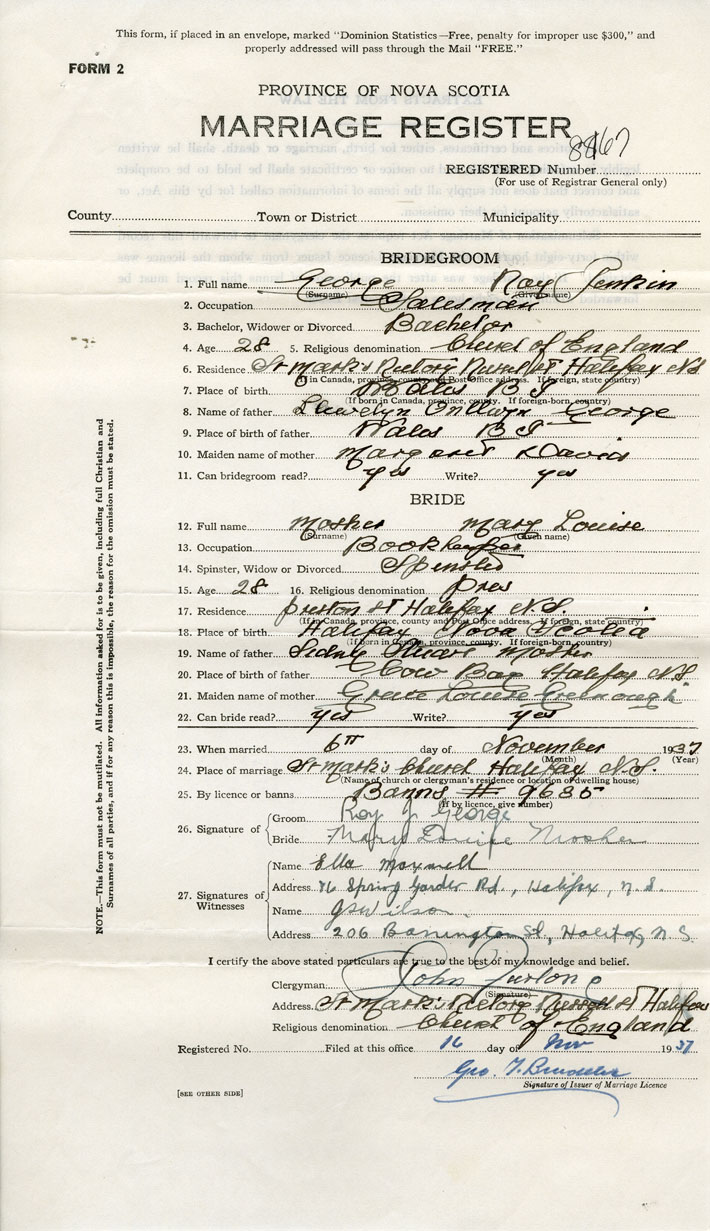 This form, if placed in an envelope, marked "Dominion Statistics—Free, penalty for improper use $300," and
properly addressed will pass through the Mail "FREE."
FORM 2
PROVINCE OF NOVA SCOTIA
MARRIAGE REGISTER
REGISTERED Number
(For use of Registrar General only)
County Town or District Municipality
BRIDEGROOM
1. Full name George Roy Jenkin
(Surname) (Given name)
2. Occupation Salesman
3. Bachelor, Widower or Divorced Bachelor
4. Age 28 5. Religious denomination Church of England
6. Residence St Mark's Rectory Russell St Halifax N S
(If in Canada, province, county and Post Office address. If foreign, state country)
7. Place of birth Wales B I
(If born in Canada, province, county. If foreign-born, country)
8. Name of father Llewelyn George
9. Place of birth of father Wales B I
10. Maiden name of mother Margaret Davis
11. Can bridegroom read? yes Write? yes
BRIDE
12. Full name Mosher Mary Louise
(Surname) (Given name)
13. Occupation Bookkeeper
14. Spinster, Widow or Divorced Spinster
15. Age 28 16. Religious denomination Pres
17. Residence Preston St Halifax N.S.
(If in Canada, province, county and Post Office address. If foreign, state country)
18. Place of birth Halifax Nova Scotia
(If born in Canada, province, county. If foreign-born, country)
19. Name of father Mosher
20. Place of birth of father Cow Bay Halifax N S
21. Maiden name of mother Louise Greenough
22. Can bride read? yes Write? yes
23. When married 6th day of November 1937
(Month) (Year)
24. Place of marriage St Mark's Church Halifax N.S.
(Name of church or clergyman's residence or location of dwelling house)
25. By licence or banns Banns # 9685
(If by licence, give number)
26. Signature of Groom Roy J George
Bride Mary Louise Mosher
27. Signatures of Witnesses Name Ella Maxwell
Address 76 Spring Garden Rd., Halifax, N.S.
Name J Wilson
Address 206 Barrington St., Halifax, N.S.
I certify the above stated particulars are true to the best of my knowledge and belief.
Clergyman John Furlong
(Signature)
Address St Mark's Rectory Russell St Halifax
Religious denomination Church of England
Registered No. Filed at this office 16 day of Nov 1937
Geo. T.
Signature of Issuer of Marriage Licence
[SEE OTHER SIDE]
NOTE.—This form must not be mutilated. All information asked for is to be given, including full Christian and
Surnames of all parties, and if for any reason this is impossible, the reason for the omission must be stated.